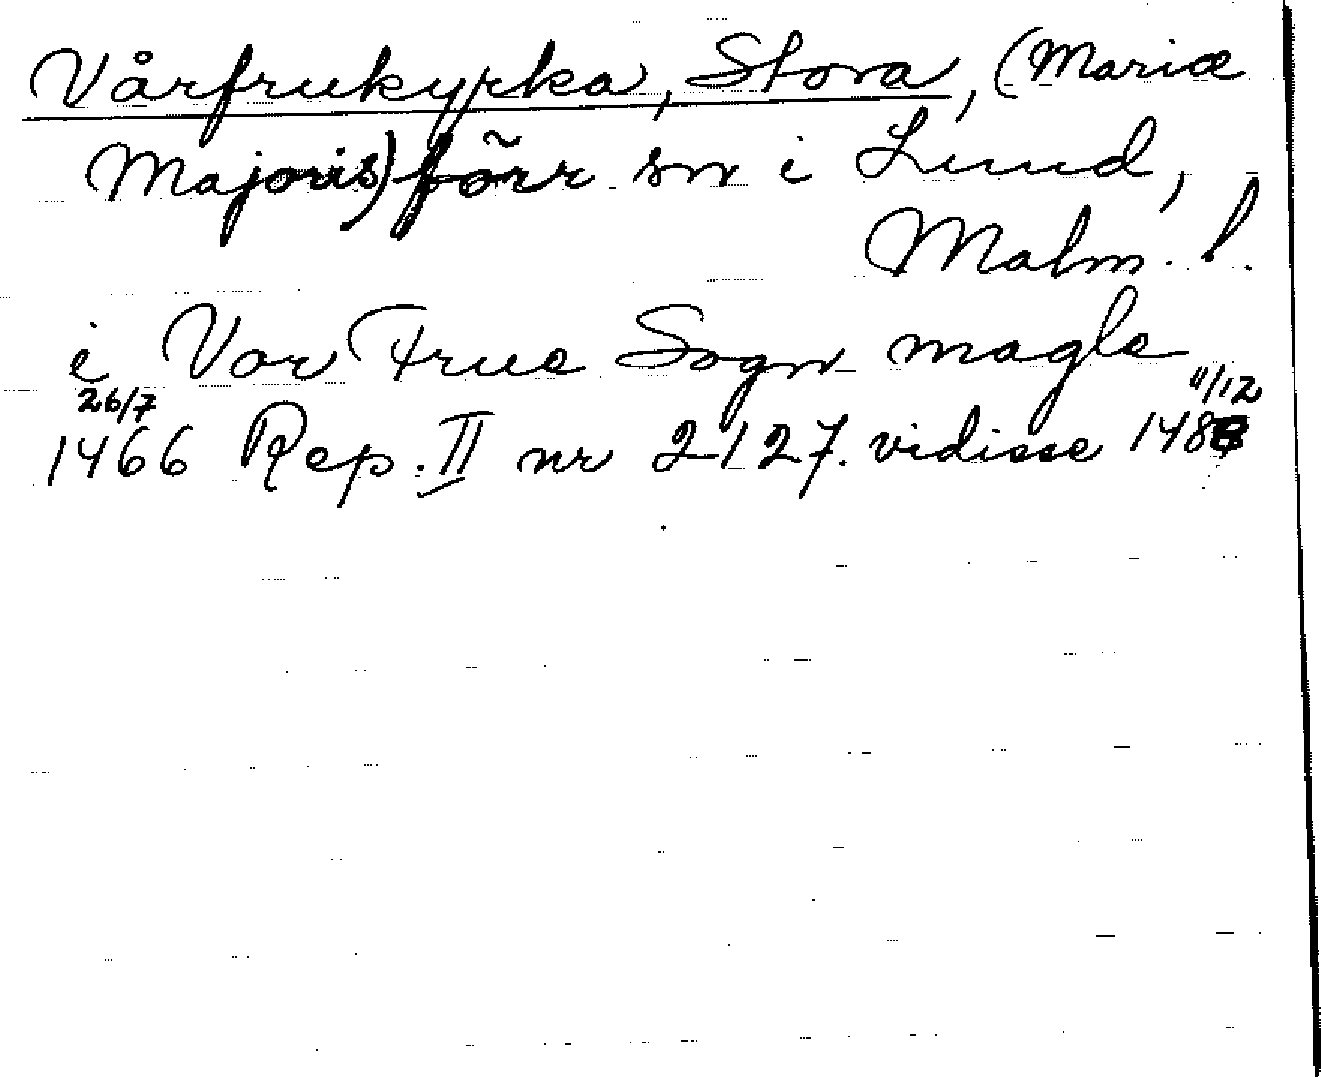 Vårfrukyrka, Stora, (Mariæ
Majoris) förr sn i Lund,
Malm. l.
i Vor Frue Sogn magle
26/7 11/12
1466 Rep. II nr 2127. vidisse